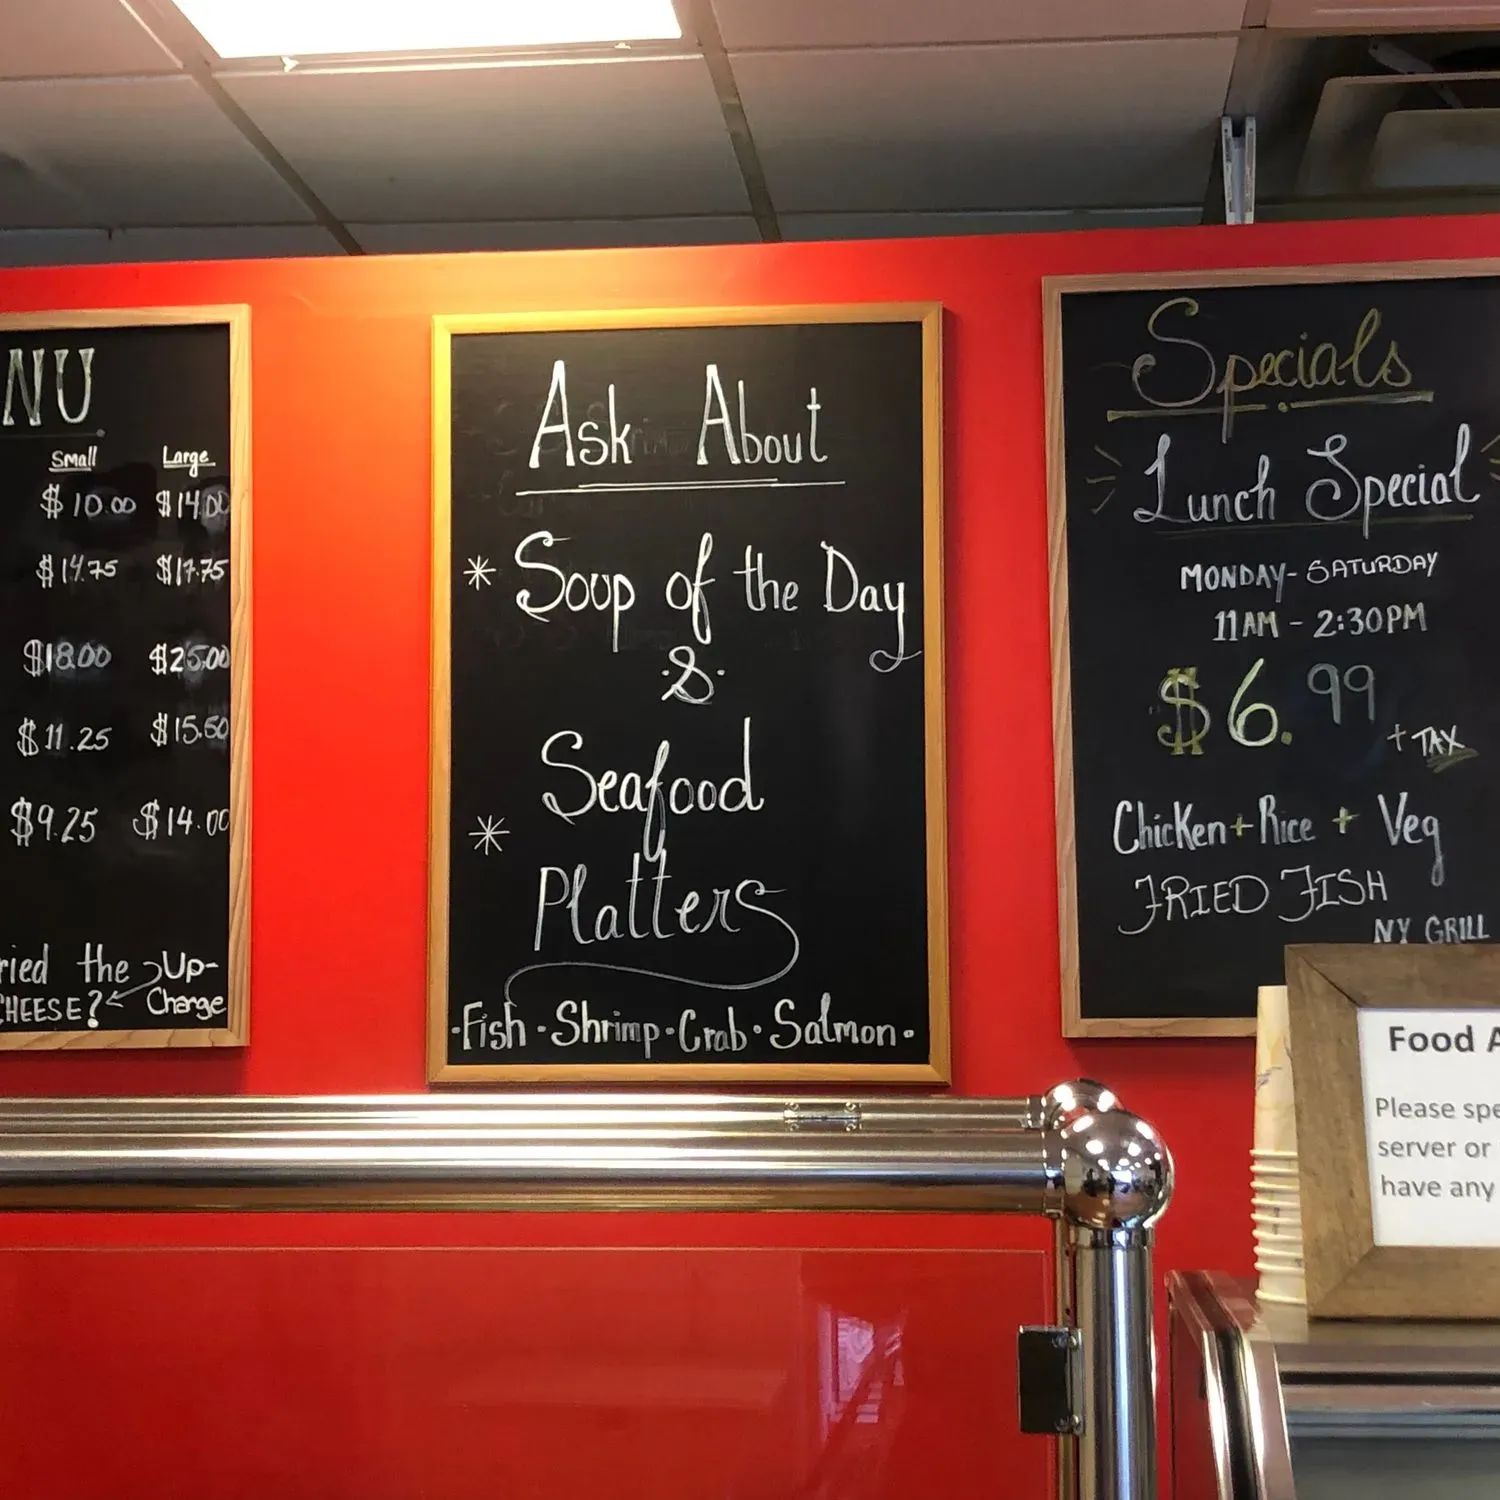 NU
Small Large
$10.00 $14.00
$14.75 $17.75
$18.00 $25.00
$11.25 $15.50
$9.25 $14.00
ried the Up-
CHEESE? Charge
Ask About
* Soup of the Day
&
Seafood
* Platters
·Fish·Shrimp·Crab·Salmon·
Specials
Lunch Special
MONDAY-SATURDAY
11AM - 2:30PM
$6.99
+ TAX
Chicken+Rice + Veg
FRIED FISH
NY GRILL
Food A
Please spe
server or
have any